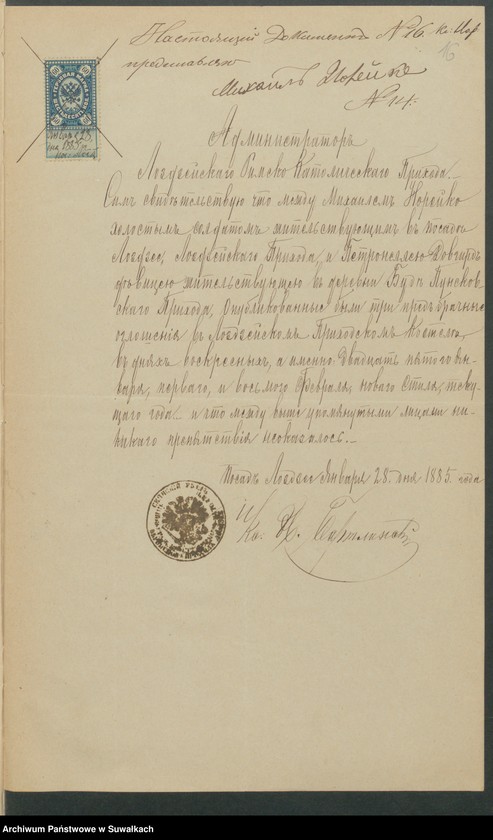 Настоящий Документъ № 26. Кс. Юр
представляю
16
Михаилъ Юрейко
№ 14.
60 60
60 60
Января 28.
дня 1885 г.
Администраторъ
Лоздзейскаго Римско Католическаго Прихода.-
Симъ свидѣтельствую что между Михаиломъ Юрейко
холостымъ солдатомъ жительствующимъ въ посадѣ
Лоздзее, Лоздзейскаго Прихода, и Петронелею Довгирд
жительствующею въ деревни Буда Пунсков-
скаго Прихода, опубликованные были три предъбрачные
оглошенія въ Лоздзейскомъ Приходскомъ Костелѣ,
въ дняхъ воскресныхъ, а именно: Двадцать пятого Ян-
варя, перваго, и восьмого Февраля, новаго Стиля, теку-
щаго года - и что между выше упомянутыми лицами ни-
какаго препятствія неоказалось.-
Посадъ Лоздзее Января 28. дня 1885. года
Кс.
Archiwum Państwowe w Suwałkach